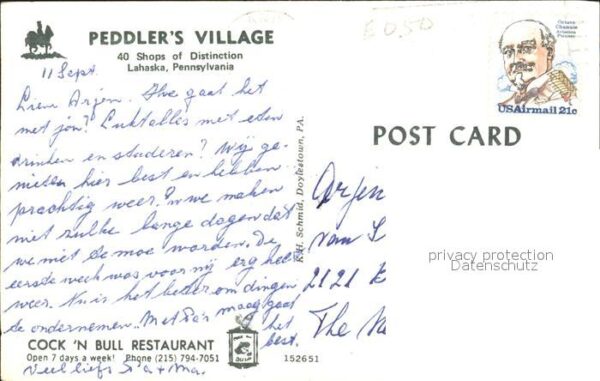 PEDDLER'S VILLAGE
40 Shops of Distinction
Lahaska, Pennsylvania
11 Sept.
Lieve Arjen. Hoe gaat het
met jou? Lukt alles met eten
drinken en studeren? Wij ge-
nieten hier best en hebben
prachtig weer. En we maken
niet zulke lange dagen dat
we niet de moe worden. De
eerste week was voor mij erg heet
weer. Nu is het beter om dingen
te ondernemen. Met Pa's maag gaat
het
best.
COCK 'N BULL RESTAURANT
Open 7 days a week! Phone (215) 794-7051
Veel liefs Pa + Ma.
152651
K.H. Schmid, Doylestown, PA.
£ 0,50
Octave
Chanute
Aviation
Pioneer
USAirmail 21c
POST CARD
Arjen
van
2121
The
privacy protection
Datenschutz